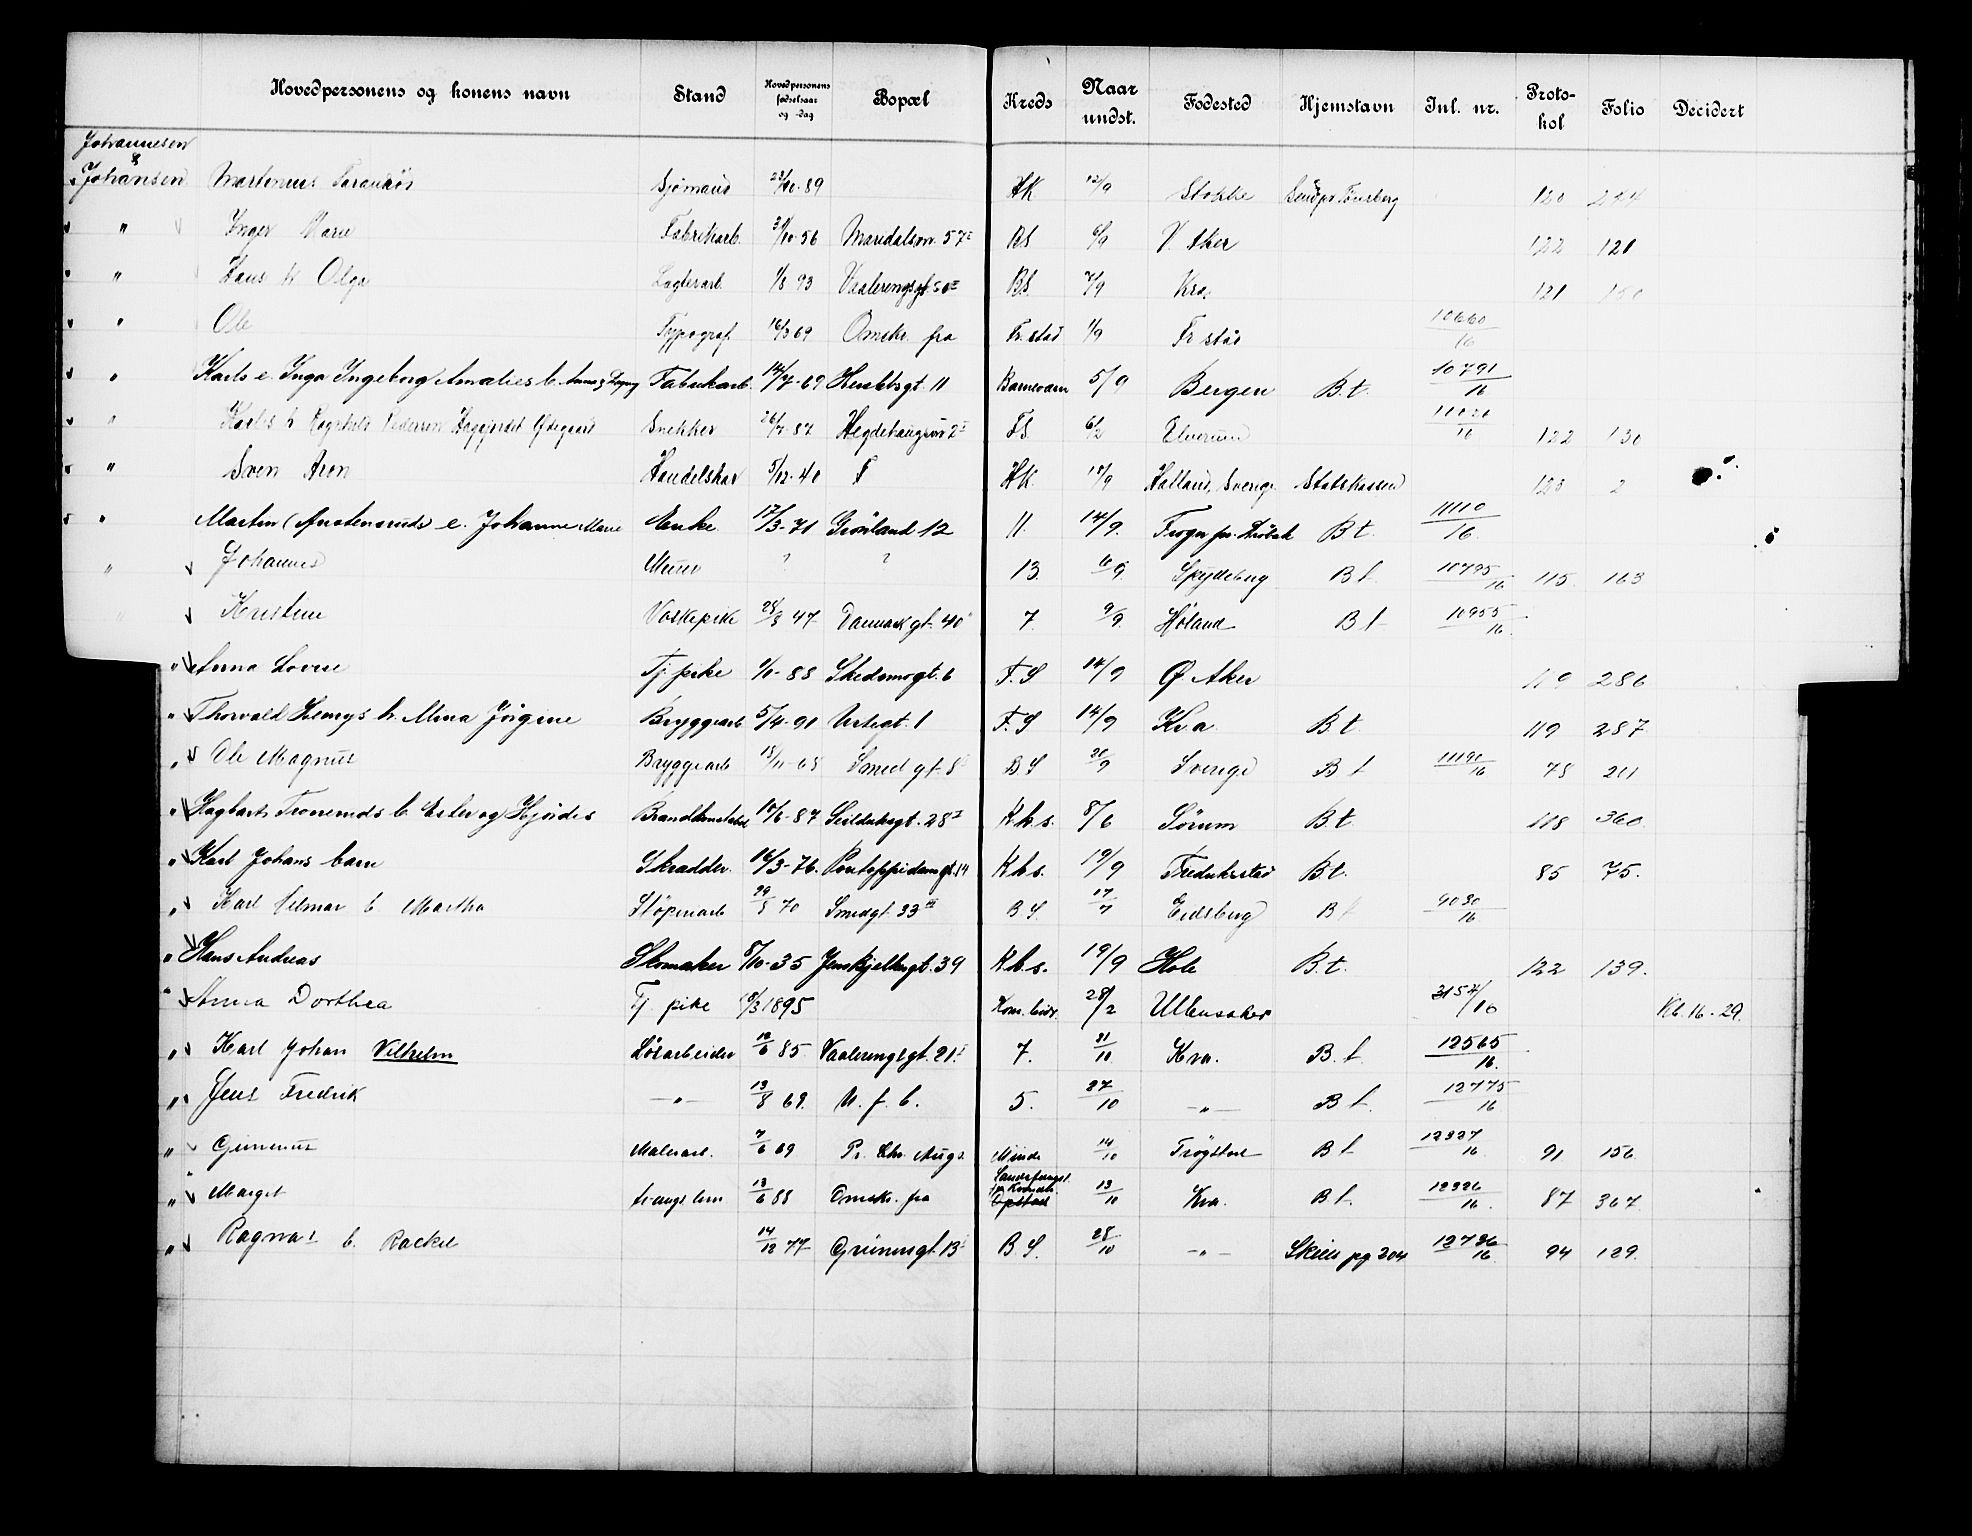 Hovedpersonens og konens navn Stand Hovedpersonens fødselsaar og -dag Bopæl Kreds Naar undst. Fødested Hjemstavn Inl. nr. Protokol Folio Decidert
Johannesen
&
Johansen Martenius Sjømand 23/10-89 HK 12/9 Stokke Tønsberg 120 244
" Inger Marie Fabrikarb. 56 Maridalsvn. 57 BS 6/9 V. Aker 122 121
" Hans h Olga Lagterarb. 1/8 93 Vaalerengsgt 50 BS 7/9 Kra. 121 150
" Ole Typograf 16/3 69 Omsk. fra Fr.stad 1/9 Fr stad 10660/16
" Karls e. Inga Ingeborg Amalies b. Fabrikarb. 14/7-69 Heraldsgt. 11 Barnevern 5/9 Bergen B.t. 10791/16
" Karls h Ragnhild Pedersen Ødegaard Snekker 26/7-87 Hegdehaugsvn 2 FS 6/2 Elverum 11020/16 122 130
" Sven Aron Handelskar 5/12-40 F HK. 18/9 Halland, Sverige Statskassen 120 2
" Martin (Austensruds) e. Johanne Marie Enke 17/3-71 Grønland 12 11. 14/9. Frogn pr. Drøbak B.t. 11110/16
" Johannes Murer ? ? 13. 6/9. Spydeberg B t 10795/16 115. 163
" Kristine Vaskepike 28/3 47 Danmarkgt. 40 7. 9/9. Høland B t 10955/16.
" Anna Lovise Tj. pike 1/10-88 Skedsmogt. 6 F.S 14/9 Ø. Aker 119 286
" Thorvald Henrys h. Alma Jørgine Bryggearb 5/4-91 Urtegt. 1 F.S 14/9 Kra B.t. 119 287
" Ole Magnus Bryggearb 18/11-68 Smedgt. 8 BS 20/9 Sverige B t 11191/16 78 211
" Hagbart Tronruds b. Ester og Hjørdis Brandkonstabel 10/6-87 Seilduksgt. 28 K.k.s. 8/6 Sørum B.t. 118 360
" Karl Johans barn Skrædder. 16/3-76. Pontoppidansgt. 14 K.k.s. 19/9 Fredrikstad B.t. 85 75.
" Karl Hilmar b. Martha Støperiarb 29/5 70 Smedgt 33 BS. 17/7 Eidsberg B t 9030/16
" Hans Andreas Skomaker 8/10-35 Jens Bjelkesgt. 39 K.k.s. 19/9 Hole B.t. 122 139.
" Anna Dorthea Tj. pike 8/3 1895 Kom. bidr. 28/2 Ullensaker 3157/10 Kl. 16-29.
" Karl Johan Vilhelm Løsarbeider 12/6 85. Vaalerengsgt. 21 7. 21/10 Kra. B.t. 12565/16.
" Jens Fredrik —"— 13/8 69. U.f.b. 5. 27/10 —"— B t. 12775/16
" Gunerius Malerarb. 7/6 69 Pr. Chr. Augs. Minde 14/10 Trøgstad B t 12327/16 91 156
" Marget 13/6 88 Omsk. fra Opstad 13/10 Kra. B t. 12326/16. 87 367.
" Ragna b. Rackel 14/12 77 Grünersgt. 13 BS. 28/10 —"— Skien pg 204 12736/16. 94 129.